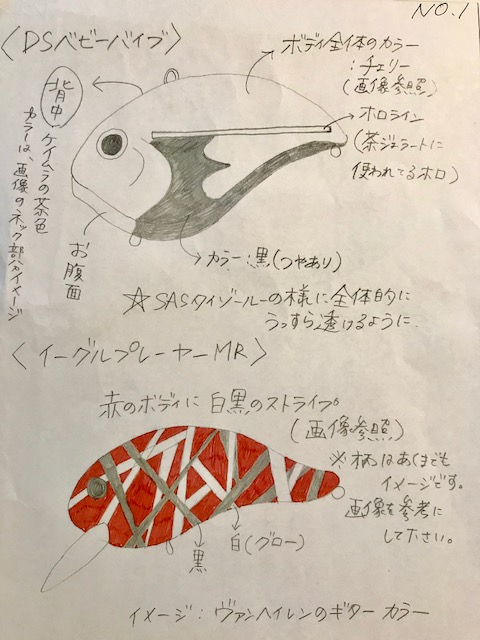 NO.1
〈DSベビーバイブ〉
ボディ全体のカラー
:チェリー
(画像参照)
ホロライン
(茶ジェラートに
使われてるホロ)
背中
ケイムラの茶色
カラーは、画像のネック部分がイメージ
お腹面
カラー:黒(つやあり)
☆SASクイゾールーの様に全体的に
うっすら透けるように
〈イーグルプレーヤーMR〉
赤のボディに白黒のストライプ。
(画像参照)
※柄はあくまでも
イメージです。
画像を参考に
して下さい。
白(グロー)
黒
イメージ:ヴァンヘイレンのギターカラー